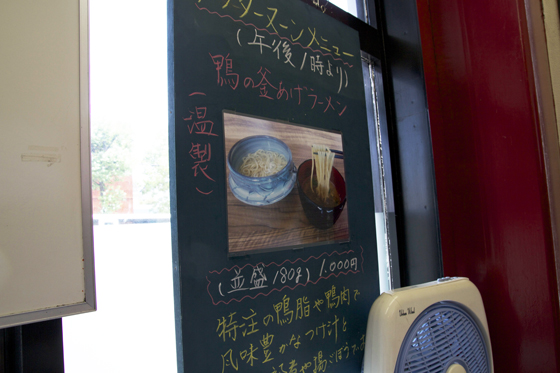 アフタヌーンメニュー
(午後1時より)
鴨の釜あげラーメン
(温製)
(並盛180g) 1.000円
特注の鴨脂や鴨肉で
風味豊かなつけ汁と